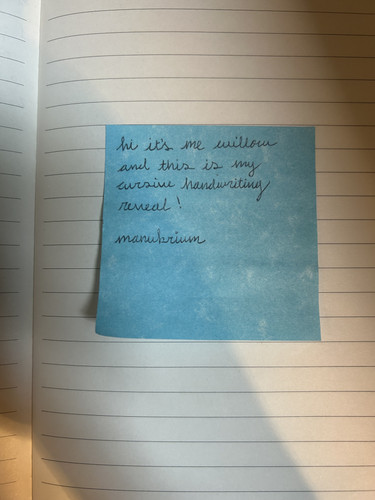 hi it's me willow
and this is my
cursive handwriting
reveal!
manubrium